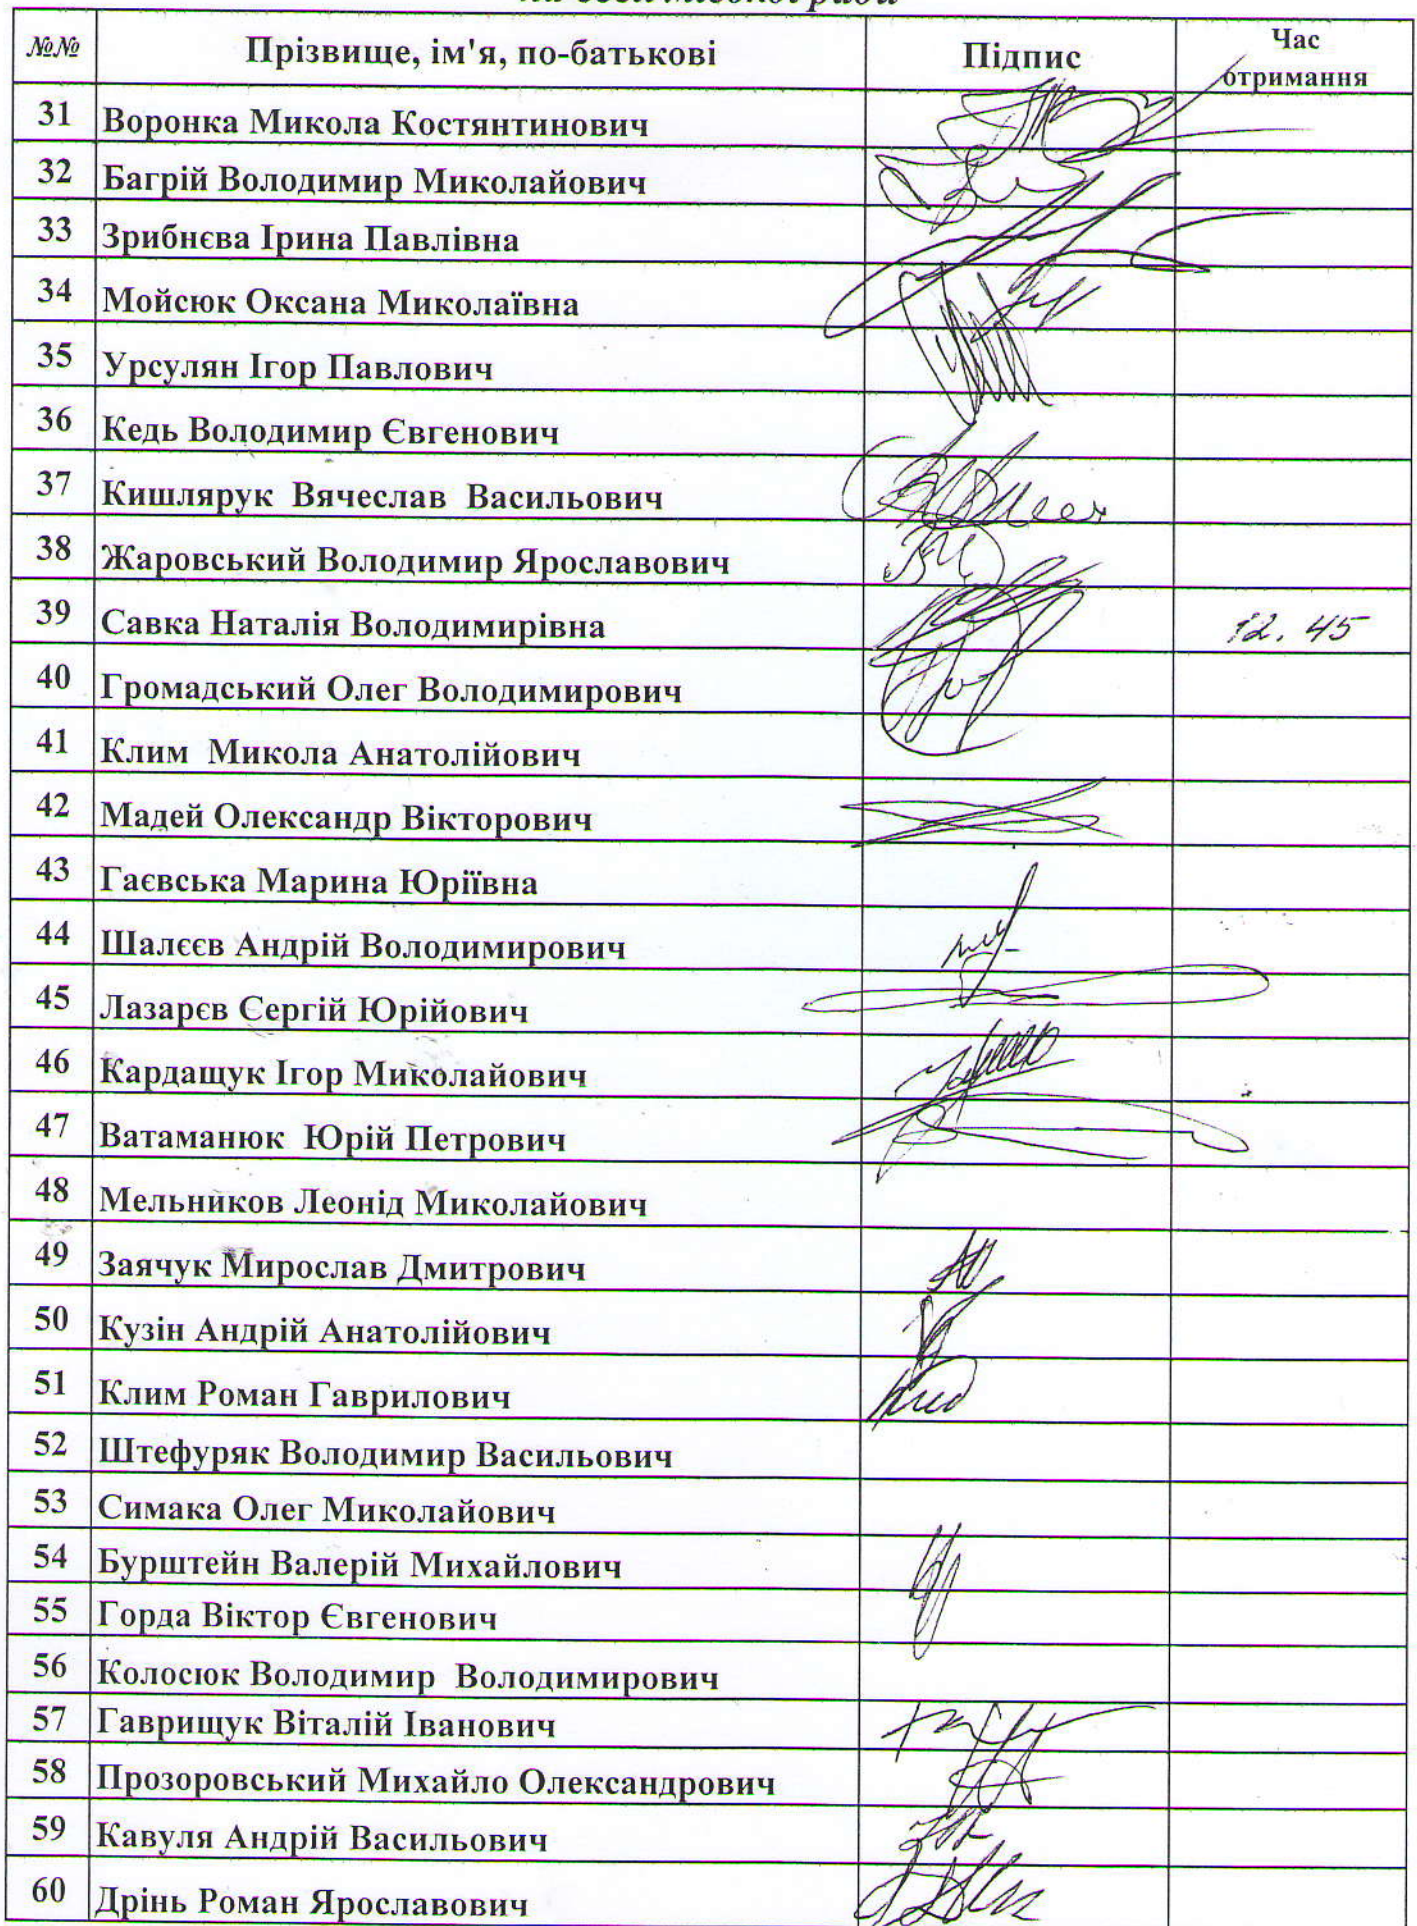 №№ Прізвище, ім'я, по-батькові Підпис Час отримання
31 Воронка Микола Костянтинович
32 Багрій Володимир Миколайович
33 Зрибнєва Ірина Павлівна
34 Мойсюк Оксана Миколаївна
35 Урсулян Ігор Павлович
36 Кедь Володимир Євгенович
37 Кишлярук Вячеслав Васильович
38 Жаровський Володимир Ярославович
39 Савка Наталія Володимирівна 12.45
40 Громадський Олег Володимирович
41 Клим Микола Анатолійович
42 Мадей Олександр Вікторович
43 Гаєвська Марина Юріївна
44 Шалєєв Андрій Володимирович
45 Лазарєв Сергій Юрійович
46 Кардащук Ігор Миколайович
47 Ватаманюк Юрій Петрович
48 Мельников Леонід Миколайович
49 Заячук Мирослав Дмитрович
50 Кузін Андрій Анатолійович
51 Клим Роман Гаврилович
52 Штефуряк Володимир Васильович
53 Симака Олег Миколайович
54 Бурштейн Валерій Михайлович
55 Горда Віктор Євгенович
56 Колосюк Володимир Володимирович
57 Гаврищук Віталій Іванович
58 Прозоровський Михайло Олександрович
59 Кавуля Андрій Васильович
60 Дрінь Роман Ярославович